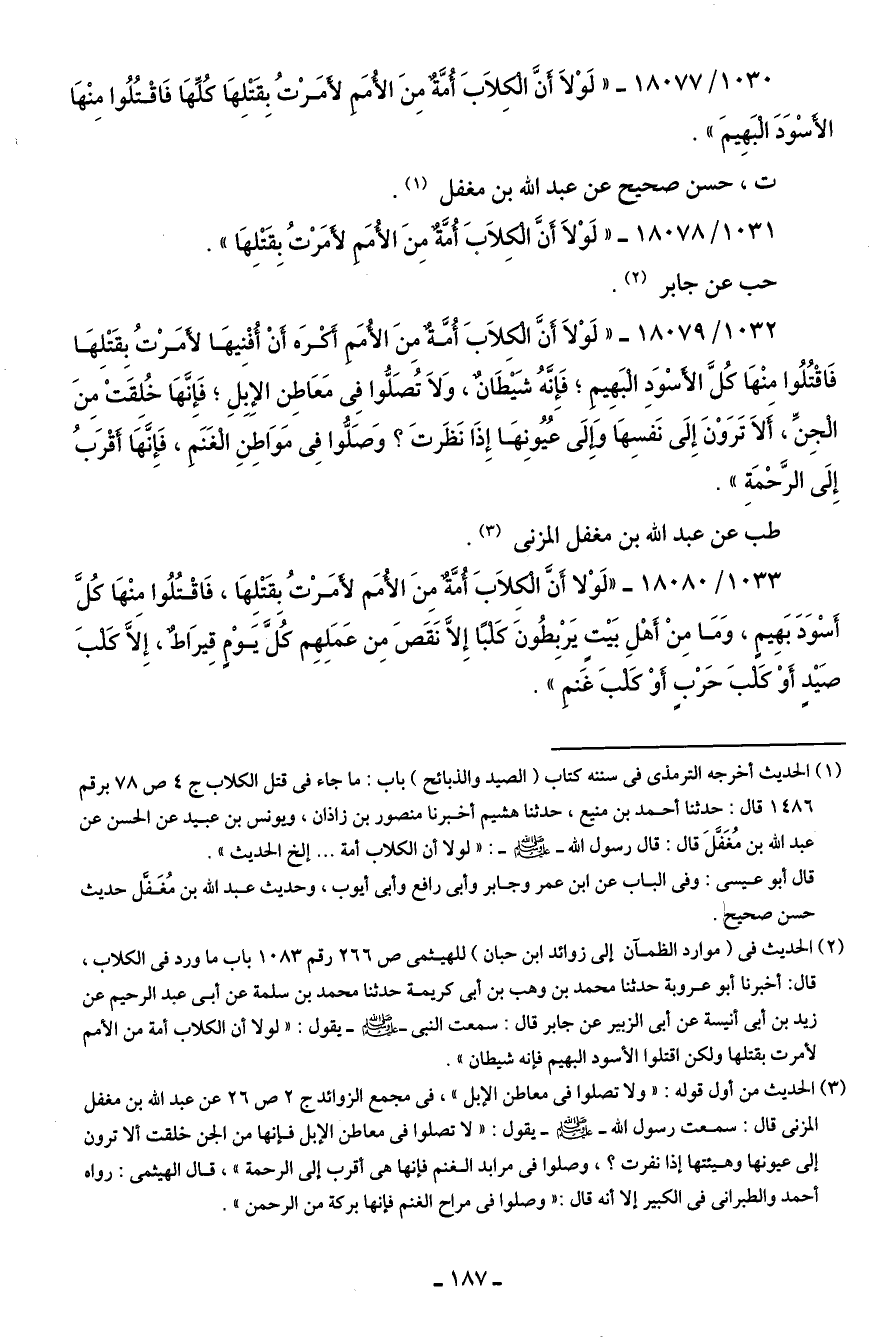 ١٠٣٠/ ١٨٠٧٧ ـ « لَوْلاَ أَنَّ الْكِلاَبَ أُمَّةٌ مِنَ الأُمَمِ لأَمَرْتُ بِقَتْلِهَا كُلِّهَا فَاقْتُلُوا مِنْهَا
الأَسْوَدَ الْبَهِيمَ » .
ت ، حسن صحيح عن عبد الله بن مغفل (١) .
١٠٣١/ ١٨٠٧٨ ـ « لَوْلاَ أَنَّ الْكِلاَبَ أُمَّةٌ مِنَ الأُمَمِ لأَمَرْتُ بِقَتْلِهَا » .
حب عن جابر (٢) .
١٠٣٢/ ١٨٠٧٩ ـ « لَوْلاَ أَنَّ الْكِلاَبَ أُمَّةٌ مِنَ الأُمَمِ أَكْرَه أَنْ أُفْنِيهَا لأَمَرْتُ بِقَتْلِهَا
فَاقْتُلُوا مِنْهَا كُلَّ الأَسْوَدِ الْبَهِيمِ ؛ فَإِنَّهُ شَيْطَانٌ ، وَلاَ تُصَلُّوا فِى مَعَاطنِ الإِبِلِ ؛ فَإِنَّهَا خُلِقَتْ مِنَ
الْجِنِّ ، أَلاَ تَرَوْنَ إِلَى نَفسِهَا وَإِلَى عُيُونِهَا إِذَا نَظَرتَ ؟ وَصَلُّوا فِى مَوَاطنِ الْغَنَمِ ، فَإِنَّهَا أَقْرَبُ
إِلَى الرَّحْمَةِ » .
طب عن عبد الله بن مغفل المزنى (٣) .
١٠٣٣/ ١٨٠٨٠ ـ «لَوْلا أَنَّ الْكِلاَبَ أُمَّةٌ مِنَ الأُمَمِ لأَمَرْتُ بِقَتْلِهَا ، فَاقْتُلُوا مِنْهَا كُلَّ
أَسْوَدَ بَهِيمٍ ، وَمَا مِنْ أَهْلِ بَيْتٍ يَرْبِطُونَ كَلْبًا إِلاَّ نَقَصَ مِن عَمَلِهِم كُلَّ يَوْمٍ قِيرَاطٌ ، إِلاَّ كَلْبَ
صَيْدٍ أَوْ كَلْبَ حَرْبٍ أَوْ كَلْبَ غَنمِ » .
(١) الحديث أخرجه الترمذى فى سننه كتاب ( الصيد والذبائح ) باب : ما جاء فى قتل الكلاب ج ٤ ص ٧٨ برقم
١٤٨٦ قال : حدثنا أحمد بن منيع ، حدثنا هشيم أخبرنا منصور بن زاذان ، ويونس بن عبيد عن الحسن عن
عبد الله بن مُغَفَّلَ قال : قال رسول الله ـ ﷺ ـ : « لولا أن الكلاب أمة ... إلخ الحديث » .
قال أبو عيسى : وفى الباب عن ابن عمر وجابر وأبى رافع وأبى أيوب ، وحديث عبد الله بن مُغَفَّل حديث
حسن صحيح .
(٢) الحديث فى ( موارد الظمآن إلى زوائد ابن حبان ) للهيثمى ص ٢٦٦ رقم ١٠٨٣ باب ما ورد فى الكلاب ،
قال: أخبرنا أبو عروبة حدثنا محمد بن وهب بن أبى كريمة حدثنا محمد بن سلمة عن أبى عبد الرحيم عن
زيد بن أبى أنيسة عن أبى الزبير عن جابر قال : سمعت النبى ـ ﷺ ـ يقول : « لولا أن الكلاب أمة من الأمم
لأمرت بقتلها ولكن اقتلوا الأسود البهيم فإنه شيطان » .
(٣) الحديث من أول قوله : « ولا تصلوا فى معاطن الإبل » ، فى مجمع الزوائد ج ٢ ص ٢٦ عن عبد الله بن مغفل
المزنى قال : سمعت رسول الله ـ ﷺ ـ يقول : « لا تصلوا فى معاطن الإبل فإنها من الجن خلقت ألا ترون
إلى عيونها وهيئتها إذا نفرت ؟ ، وصلوا فى مرابد الغنم فإنها هى أقرب إلى الرحمة » ، قال الهيثمى : رواه
أحمد والطبرانى فى الكبير إلا أنه قال :« وصلوا فى مراح الغنم فإنها بركة من الرحمن » .
ـ ١٨٧ ـ